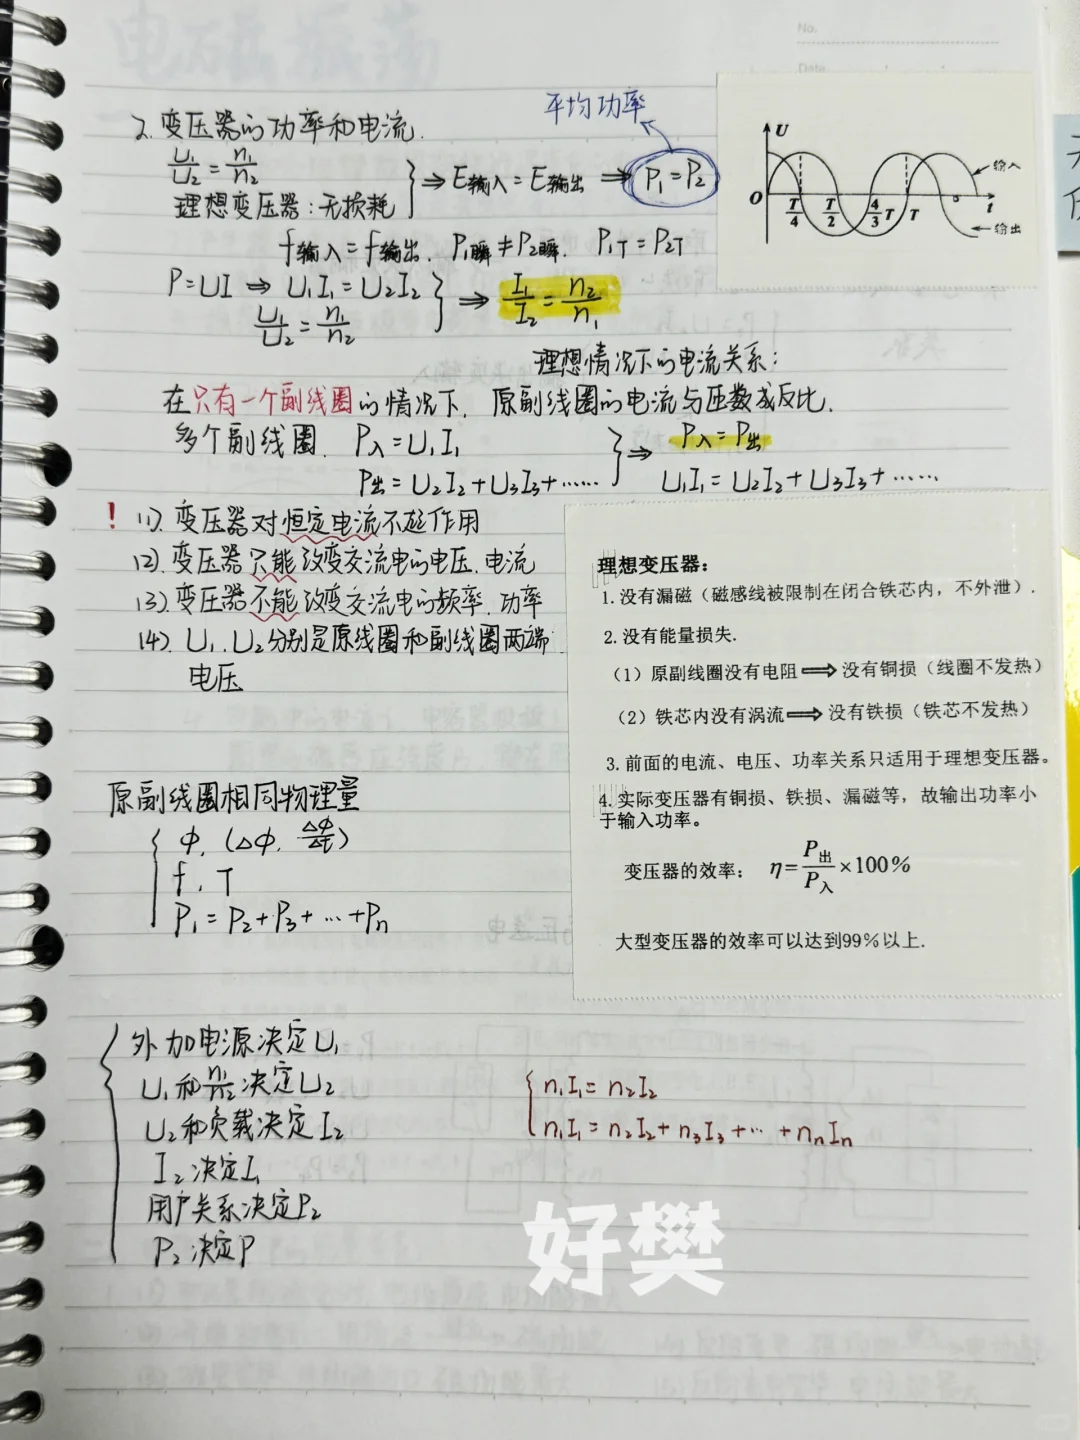 No.
平均功率
2. 变压器的功率和电流.
U₁/U₂ = n₁/n₂
理想变压器：无损耗
} ⇒ E输入 = E输出 ⇒ P₁ = P₂
f输入 = f输出. P₁瞬 ≠ P₂瞬. P₁T = P₂T
U
输入
O T/4 T/2 4/3 T T t
输出
P = UI ⇒ U₁I₁ = U₂I₂
U₁/U₂ = n₁/n₂
} ⇒ I₁/I₂ = n₂/n₁
理想情况下的电流关系：
在只有一个副线圈的情况下. 原副线圈的电流与匝数成反比.
多个副线圈. P入 = U₁I₁
P出 = U₂I₂ + U₃I₃ + ……
} ⇒ P入 = P出
U₁I₁ = U₂I₂ + U₃I₃ + ……
! (1). 变压器对恒定电流不起作用
(2). 变压器只能改变交流电的电压. 电流
(3). 变压器不能改变交流电的频率. 功率
(4). U₁. U₂分别是原线圈和副线圈两端
电压
理想变压器：
1. 没有漏磁（磁感线被限制在闭合铁芯内，不外泄）.
2. 没有能量损失.
（1）原副线圈没有电阻⟹没有铜损（线圈不发热）
（2）铁芯内没有涡流⟹没有铁损（铁芯不发热）
3. 前面的电流、电压、功率关系只适用于理想变压器。
4. 实际变压器有铜损、铁损、漏磁等，故输出功率小
于输入功率。
变压器的效率： η = P出/P入 × 100%
大型变压器的效率可以达到99%以上.
原副线圈相同物理量
Φ. (ΔΦ. ΔΦ/Δt)
f. T
P₁ = P₂ + P₃ + … + Pn
外加电源决定U₁
U₁和n₁/n₂决定U₂
U₂和负载决定I₂
I₂决定I₁
用户关系决定P₂
P₂决定P
n₁I₁ = n₂I₂
n₁I₁ = n₂I₂ + n₃I₃ + … + nnIn
好樊